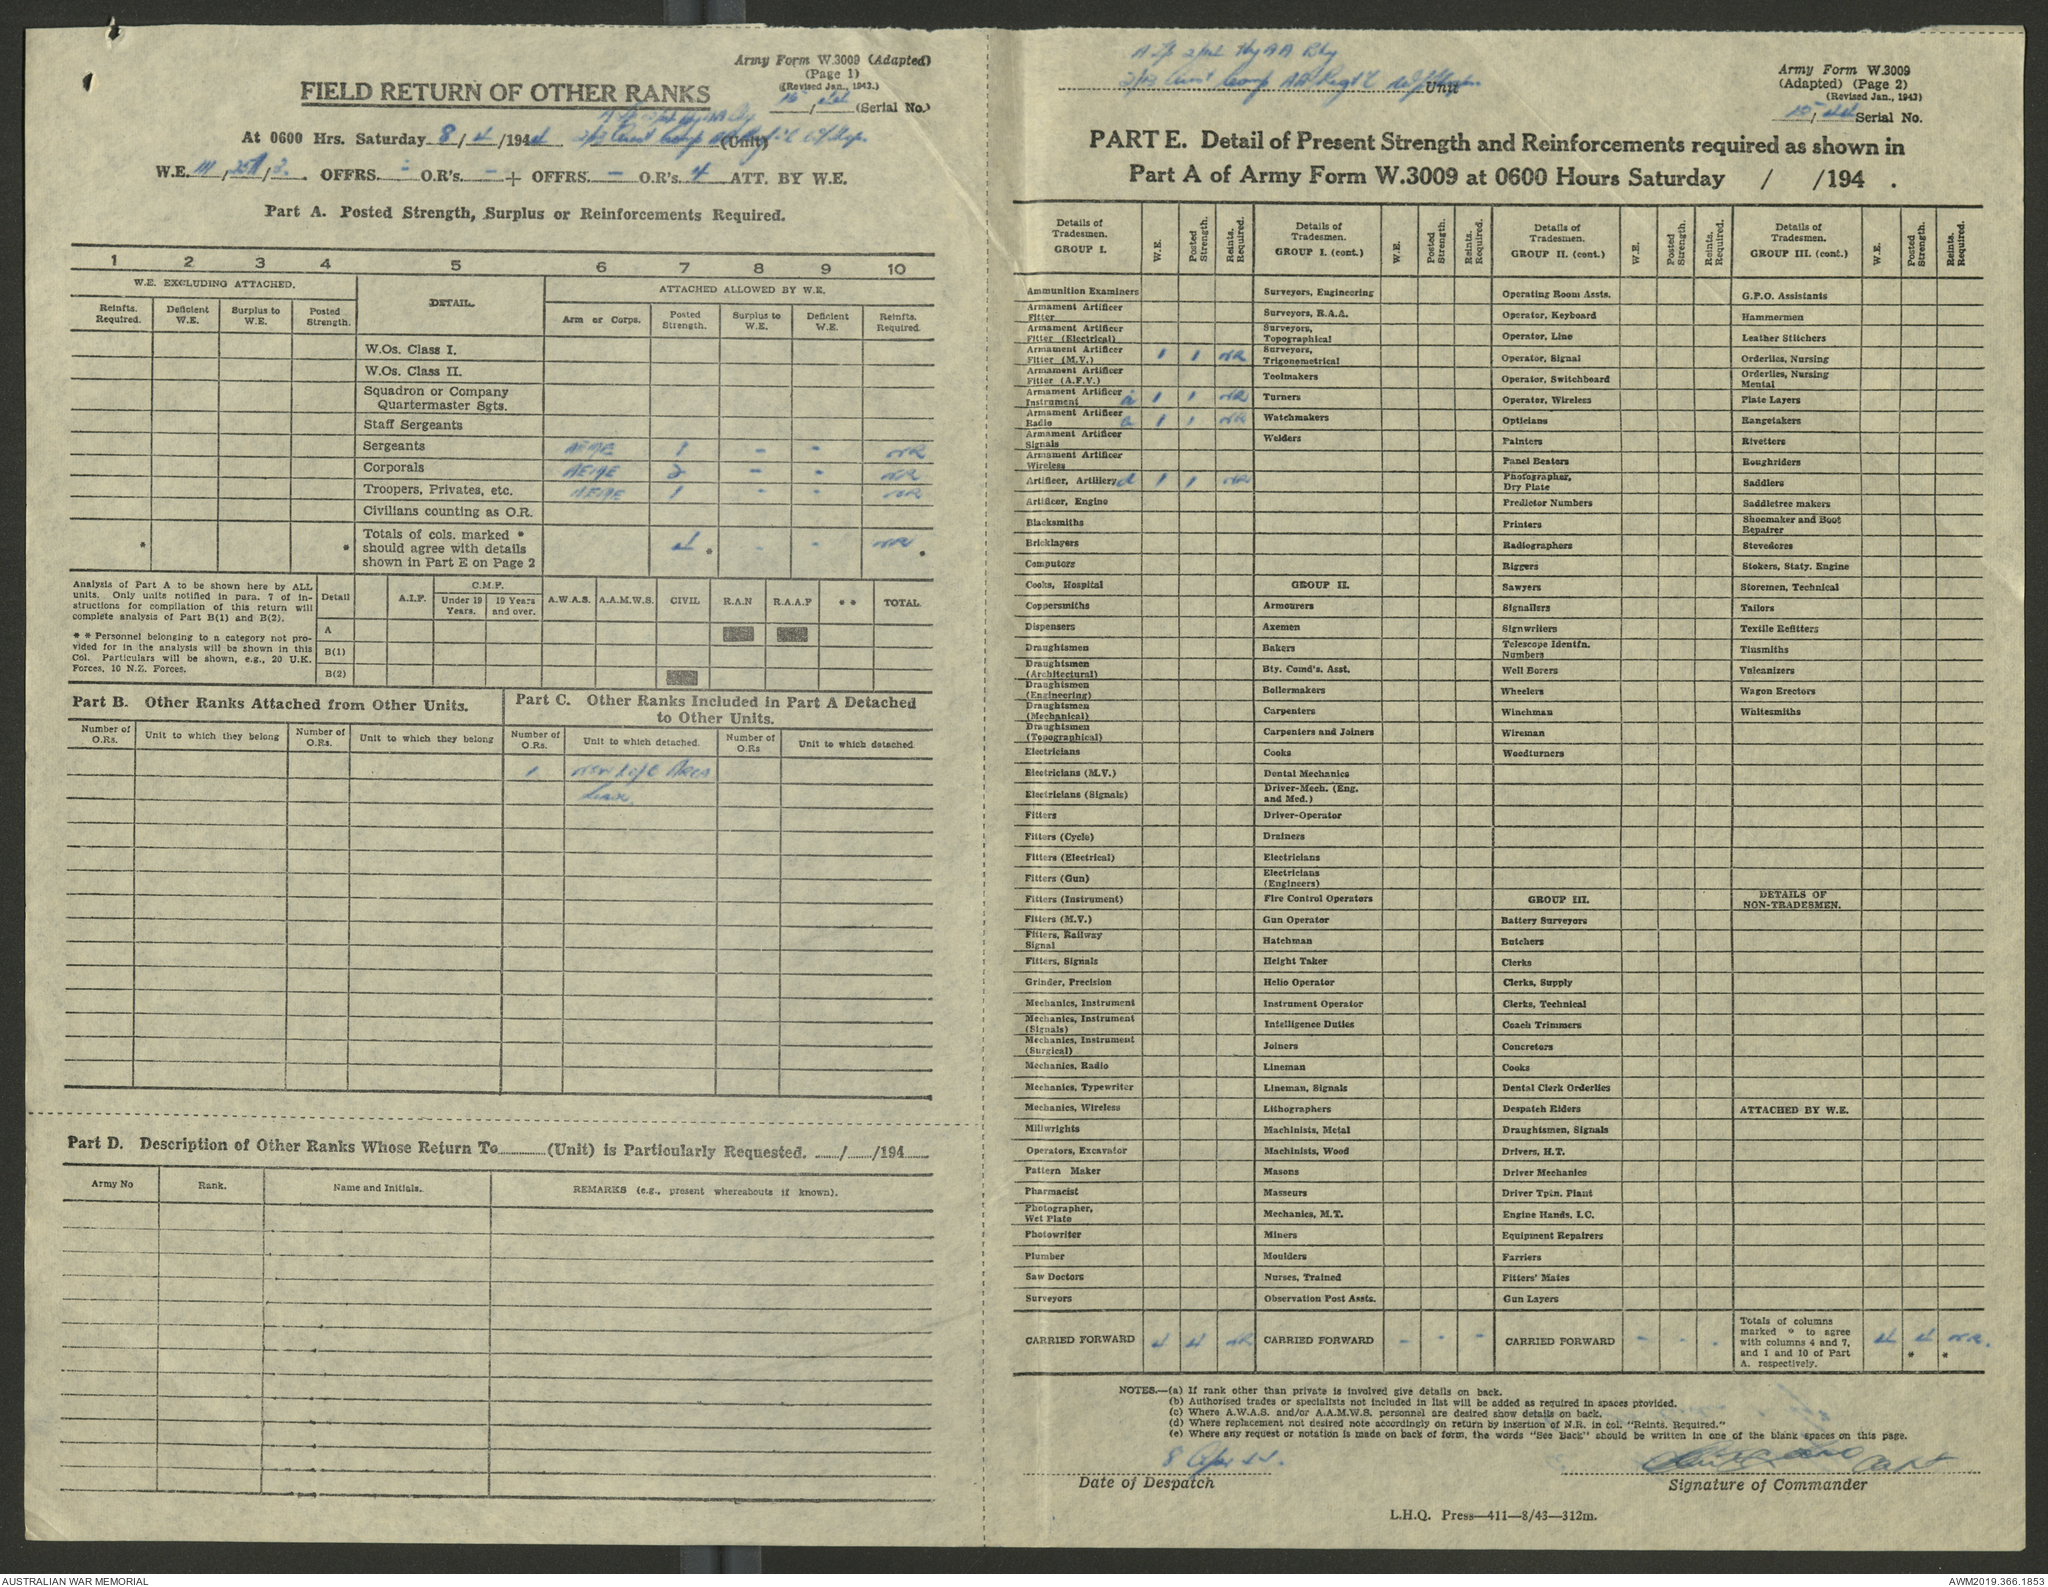 Army Form W.3009 (Adapted)
(Page 1)
(Revised Jan., 1943.)
15/44 (Serial No.)
FIELD RETURN OF OTHER RANKS
At 0600 Hrs. Saturday 8/4/1944 (Unit)
W.E. III/ / . OFFRS. - O.R's. - + OFFRS. - O.R's. 4 ATT. BY W.E.
Part A. Posted Strength, Surplus or Reinforcements Required.
1 2 3 4 5 6 7 8 9 10
W.E. EXCLUDING ATTACHED. DETAIL. ATTACHED ALLOWED BY W.E.
Reinfts. Required. Deficient W.E. Surplus to W.E. Posted Strength. Arm or Corps. Posted Strength. Surplus to W.E. Deficient W.E. Reinfts. Required.
W.Os. Class I.
W.Os. Class II.
Squadron or Company
Quartermaster Sgts.
Staff Sergeants
Sergeants AEME 1 - - NR
Corporals AEME 2 - - NR
Troopers, Privates, etc. AEME 1 - - NR
Civilians counting as O.R.
Totals of cols. marked *
should agree with details
shown in Part E on Page 2
* * 4 * - - NR *
Analysis of Part A to be shown here by ALL
units. Only units notified in para. 7 of in-
structions for compilation of this return will
complete analysis of Part B(1) and B(2).
* * Personnel belonging to a category not pro-
vided for in the analysis will be shown in this
Col. Particulars will be shown, e.g., 20 U.K.
Forces, 10 N.Z. Forces.
Detail A.I.F. C.M.F. Under 19 Years. 19 Years and over. A.W.A.S. A.A.M.W.S. CIVIL R.A.N R.A.A.F * * TOTAL.
A
B(1)
B(2)
Part B. Other Ranks Attached from Other Units.
Part C. Other Ranks Included in Part A Detached
to Other Units.
Number of O.Rs. Unit to which they belong Number of O.Rs. Unit to which they belong Number of O.Rs. Unit to which detached. Number of O.Rs Unit to which detached
1 NSW L of C Area
Leave
Part D. Description of Other Ranks Whose Return To (Unit) is Particularly Requested. / /194
Army No Rank. Name and Initials. REMARKS (e.g., present whereabouts if known).
2/2 Hy AA Bty
2/3 Aust Comp AA Regt Unit
Army Form W.3009
(Adapted) (Page 2)
(Revised Jan., 1943)
15/44 Serial No.
PART E. Detail of Present Strength and Reinforcements required as shown in
Part A of Army Form W.3009 at 0600 Hours Saturday / /194 .
Details of Tradesmen. GROUP I. W.E. Posted Strength. Reints. Required.
Ammunition Examiners
Armament Artificer Fitter
Armament Artificer Fitter (Electrical)
Armament Artificer Fitter (M.V.) 1 1 NR
Armament Artificer Fitter (A.F.V.)
Armament Artificer Instrument a 1 1 NR
Armament Artificer Radio a 1 1 NR
Armament Artificer Signals
Armament Artificer Wireless
Artificer, Artillery d 1 1 NR
Artificer, Engine
Blacksmiths
Bricklayers
Computors
Cooks, Hospital
Coppersmiths
Dispensers
Draughtsmen
Draughtsmen (Architectural)
Draughtsmen (Engineering)
Draughtsmen (Mechanical)
Draughtsmen (Topographical)
Electricians
Electricians (M.V.)
Electricians (Signals)
Fitters
Fitters (Cycle)
Fitters (Electrical)
Fitters (Gun)
Fitters (Instrument)
Fitters (M.V.)
Fitters, Railway Signal
Fitters, Signals
Grinder, Precision
Mechanics, Instrument
Mechanics, Instrument (Signals)
Mechanics, Instrument (Surgical)
Mechanics, Radio
Mechanics, Typewriter
Mechanics, Wireless
Millwrights
Operators, Excavator
Pattern Maker
Pharmacist
Photographer, Wet Plate
Photowriter
Plumber
Saw Doctors
Surveyors
CARRIED FORWARD 4 4 NR
Details of Tradesmen. GROUP I. (cont.) W.E. Posted Strength. Reints. Required.
Surveyors, Engineering
Surveyors, R.A.A.
Surveyors, Topographical
Surveyors, Trigonometrical
Toolmakers
Turners
Watchmakers
Welders
GROUP II.
Armourers
Axemen
Bakers
Bty. Comd's. Asst.
Boilermakers
Carpenters
Carpenters and Joiners
Cooks
Dental Mechanics
Driver-Mech. (Eng. and Med.)
Driver-Operator
Drainers
Electricians
Electricians (Engineers)
Fire Control Operators
Gun Operator
Hatchman
Height Taker
Helio Operator
Instrument Operator
Intelligence Duties
Joiners
Lineman
Lineman, Signals
Lithographers
Machinists, Metal
Machinists, Wood
Masons
Masseurs
Mechanics, M.T.
Miners
Moulders
Nurses, Trained
Observation Post Assts.
CARRIED FORWARD - - -
Details of Tradesmen. GROUP II. (cont.) W.E. Posted Strength. Reints. Required.
Operating Room Assts.
Operator, Keyboard
Operator, Line
Operator, Signal
Operator, Switchboard
Operator, Wireless
Opticians
Painters
Panel Beaters
Photographer, Dry Plate
Predictor Numbers
Printers
Radiographers
Riggers
Sawyers
Signallers
Signwriters
Telescope Identfn. Numbers
Well Borers
Wheelers
Winchman
Wireman
Woodturners
GROUP III.
Battery Surveyors
Butchers
Clerks
Clerks, Supply
Clerks, Technical
Coach Trimmers
Concretors
Cooks
Dental Clerk Orderlies
Despatch Riders
Draughtsmen, Signals
Drivers, H.T.
Driver Mechanics
Driver Tptn. Plant
Engine Hands, I.C.
Equipment Repairers
Farriers
Fitters' Mates
Gun Layers
CARRIED FORWARD - - -
Details of Tradesmen. GROUP III. (cont.) W.E. Posted Strength. Reints. Required.
G.P.O. Assistants
Hammermen
Leather Stitchers
Orderlies, Nursing
Orderlies, Nursing Mental
Plate Layers
Rangetakers
Rivetters
Roughriders
Saddlers
Saddletree makers
Shoemaker and Boot Repairer
Stevedores
Stokers, Staty. Engine
Storemen, Technical
Tailors
Textile Refitters
Tinsmiths
Vulcanizers
Wagon Erectors
Whitesmiths
DETAILS OF NON-TRADESMEN.
ATTACHED BY W.E.
Totals of columns
marked * to agree
with columns 4 and 7,
and 1 and 10 of Part
A. respectively.
4 4 * NR. *
NOTES.—(a) If rank other than private is involved give details on back.
(b) Authorised trades or specialists not included in list will be added as required in spaces provided.
(c) Where A.W.A.S. and/or A.A.M.W.S. personnel are desired show details on back.
(d) Where replacement not desired note accordingly on return by insertion of N.R. in col. "Reints. Required."
(e) Where any request or notation is made on back of form, the words "See Back" should be written in one of the blank spaces on this page.
8 Apr 44.
Date of Despatch
Capt
Signature of Commander
L.H.Q. Press—411—8/43—312m.
AUSTRALIAN WAR MEMORIAL
AWM2019.366.1853